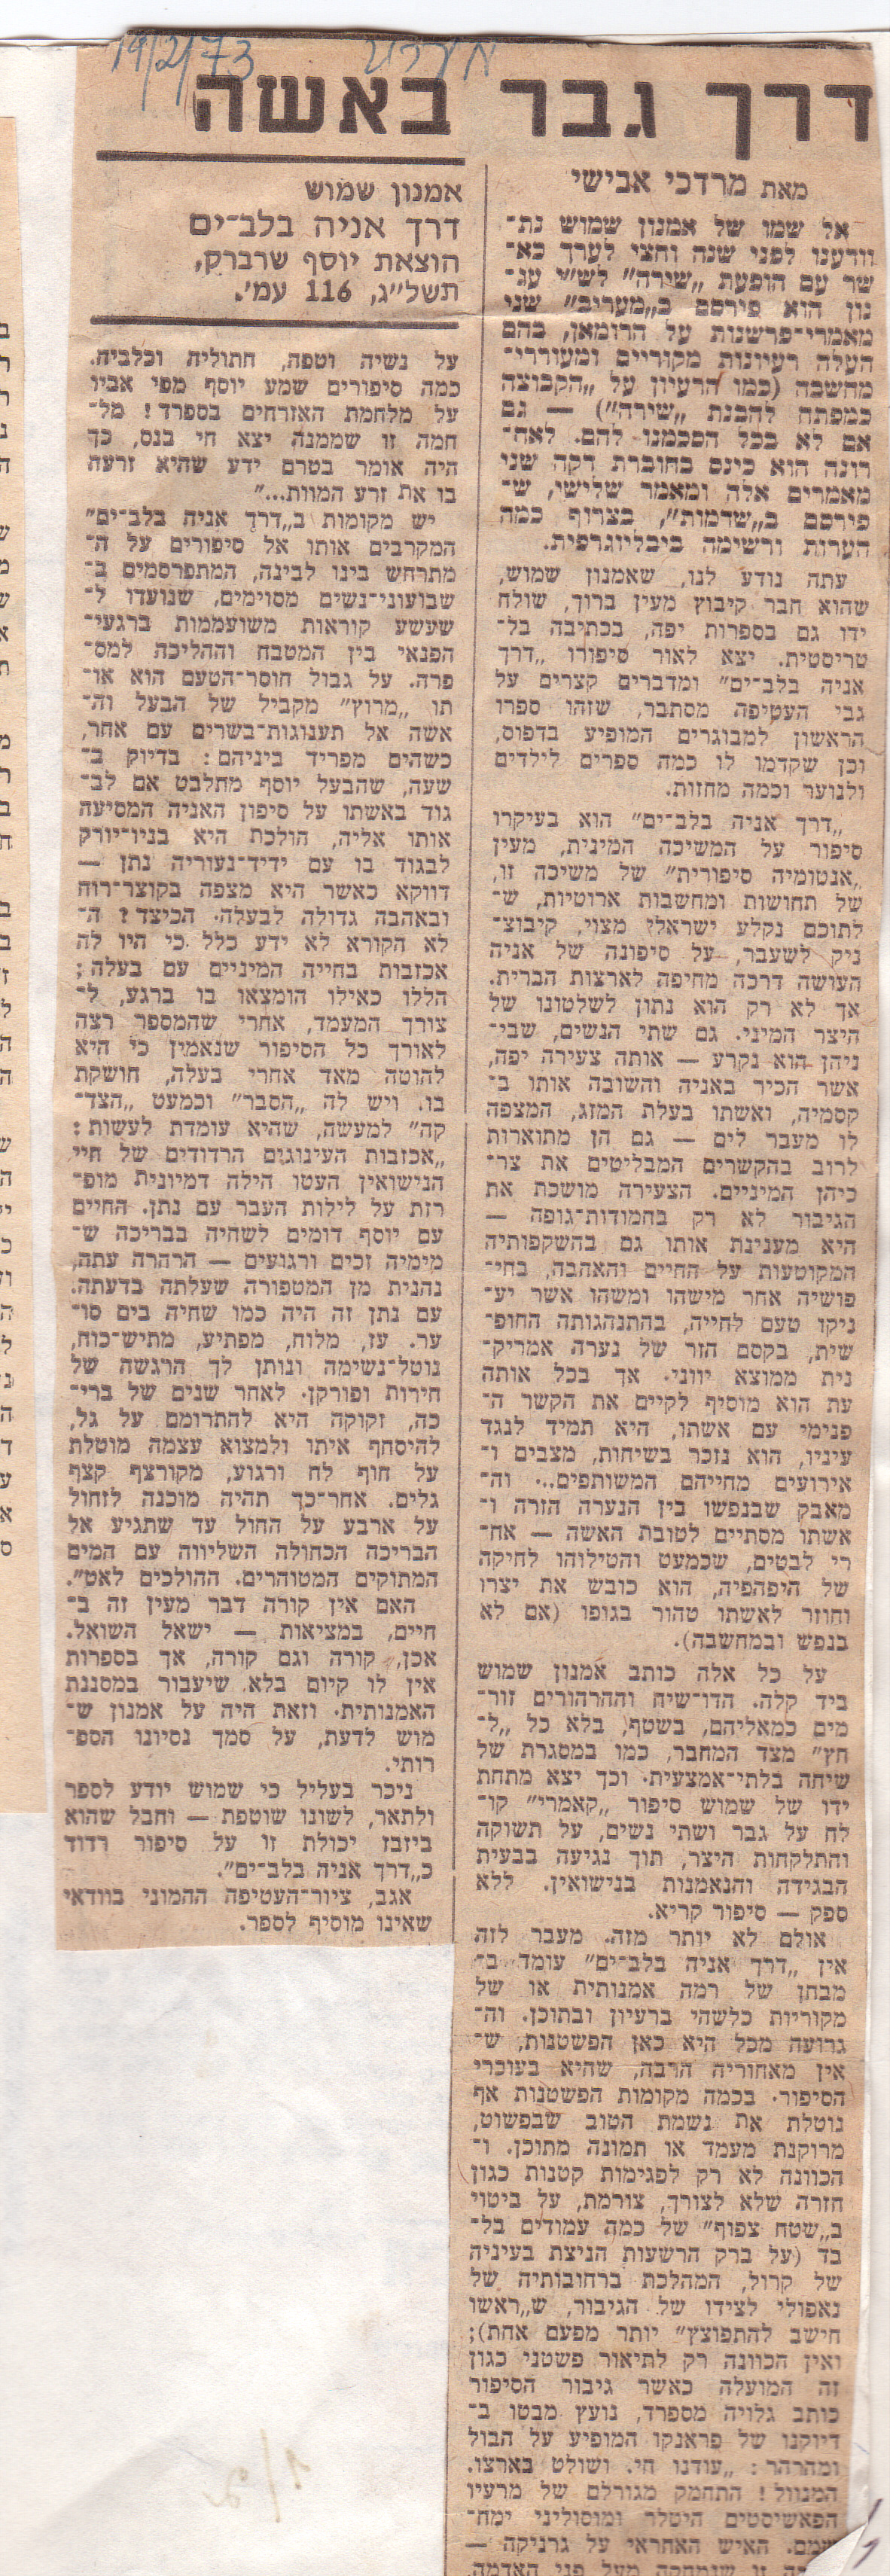 מעריב 19/2/73
דרך גבר באשה
מאת מרדכי אבישי
אל שמו של אמנון שמוש נת־
וודענו לפני שנה וחצי לערך כא־
שר עם הופעת „שירה” לש״י עג־
נון הוא פירסם ב„מעריב” שני
מאמרי־פרשנות על הרומאן, בהם
העלה רעיונות מקוריים ומעוררי־
מחשבה (כמו הרעיון על „הקבוצה
כמפתח להבנת „שירה”) — גם
אם לא בכל הסכמנו להם. לאח־
רונה הוא כינס בחוברת דקה שני
מאמרים אלה ומאמר שלישי, ש־
פורסם ב„שדמות”, בצרוף כמה
הערות ורשימה ביבליוגרפית.
עתה נודע לנו, שאמנון שמוש,
שהוא חבר קיבוץ מעין ברוך, שולח
ידו גם בספרות יפה, בכתיבה בל־
טריסטית. יצא לאור סיפורו „דרך
אניה בלב־ים” ומדברים קצרים על
גבי העטיפה מסתבר, שזהו ספרו
הראשון למבוגרים המופיע בדפוס,
וכן שקדמו לו כמה ספרים לילדים
ולנוער וכמה מחזות.
„דרך אניה בלב־ים” הוא בעיקרו
סיפור על המשיכה המינית, מעין
„אנטומיה סיפורית” של משיכה זו,
של תחושות ומחשבות ארוטיות, ש־
לתוכם נקלע ישראלי מצוי, קיבוצ־
ניק לשעבר, על סיפונה של אניה
העושה דרכה מחיפה לארצות הברית.
אך לא רק הוא נתון לשלטונו של
היצר המיני. גם שתי הנשים, שבי־
ניהן הוא נקרע — אותה צעירה יפה,
אשר הכיר באניה והשובה אותו ב־
קסמיה, ואשתו בעלת המזג, המצפה
לו מעבר לים — גם הן מתוארות
לרוב בהקשרים המבליטים את צר־
כיהן המיניים. הצעירה מושכת את
הגיבור לא רק בחמודות־גופה —
היא מענינת אותו גם בהשקפותיה
המקוטעות על החיים והאהבה, בחי־
פושיה אחר מישהו ומשהו אשר יע־
ניקו טעם לחייה, בהתנהגותה החופ־
שית, בקסם הזר של נערה אמריק־
נית ממוצא יווני. אך בכל אותה
עת הוא מוסיף לקיים את הקשר ה־
פנימי עם אשתו, היא תמיד לנגד
עיניו, הוא נזכר בשיחות, מצבים ו־
אירועים מחייהם המשותפים... וה־
מאבק שבנפשו בין הנערה הזרה ו־
אשתו מסתיים לטובת האשה — אח־
רי לבטים, שכמעט והטילוהו לחיקה
של היפהפיה, הוא כובש את יצרו
וחוזר לאשתו טהור בגופו (אם לא
בנפש ובמחשבה).
על כל אלה כותב אמנון שמוש
ביד קלה. הדו־שיח וההרהורים זור־
מים כמאליהם, בשטף, בלא כל „ל־
חץ” מצד המחבר, כמו במסגרת של
שיחה בלתי־אמצעית. וכך יצא מתחת
ידו של שמוש סיפור „קאמרי” קו־
לח על גבר ושתי נשים, על תשוקה
והתלקחות היצר, תוך נגיעה בבעית
הבגידה והנאמנות בנישואין. ללא
ספק — סיפור קריא.
אולם לא יותר מזה. מעבר לזה
אין „דרך אניה בלב־ים” עומד ב־
מבחן של רמה אמנותית או של
מקוריות כלשהי ברעיון ובתוכן. וה־
גרועה מכל היא כאן הפשטנות, ש־
אין מאחוריה הרבה, שהיא בעוכרי
הסיפור. בכמה מקומות הפשטנות אף
נוטלת את נשמת הטוב שבפשוט,
מרוקנת מעמד או תמונה מתוכן. ו־
הכוונה לא רק לפגימות קטנות כגון
חזרה שלא לצורך, צורמת, על ביטוי
ב„שטח צפוף” של כמה עמודים בל־
בד (על ברק הרשעות הניצת בעיניה
של קרול, המהלכת ברחובותיה של
נאפולי לצידו של הגיבור, ש„ראשו
חישב להתפוצץ” יותר מפעם אחת);
ואין הכוונה רק לתיאור פשטני כגון
זה המועלה כאשר גיבור הסיפור
כותב גלויה מספרד, נועץ מבטו ב־
דיוקנו של פראנקו המופיע על הבול
ומהרהר: „עודנו חי. ושולט בארצו.
המנוול! התחמק מגורלם של מרעיו
הפאשיסטים היטלר ומוסוליני ימח־
שמם. האיש האחראי על גרניקה —
זו שנמחקה מעל פני האדמה,
אמנון שמוש
דרך אניה בלב־ים
הוצאת יוסף שרברק,
תשל״ג, 116 עמ׳.
על נשיה וטפה, חתוליה וכלביה.
כמה סיפורים שמע יוסף מפי אביו
על מלחמת האזרחים בספרד! מל־
חמה זו שממנה יצא חי בנס, כך
היה אומר בטרם ידע שהיא זרעה
בו את זרע המוות...”
יש מקומות ב„דרך אניה בלב־ים”
המקרבים אותו אל סיפורים על ה־
מתרחש בינו לבינה, המתפרסמים ב־
שבועוני־נשים מסוימים, שנועדו ל־
שעשע קוראות משועממות ברגעי־
הפנאי בין המטבח וההליכה למס־
פרה. על גבול חוסר־הטעם הוא או־
תו „מרוץ” מקביל של הבעל וה־
אשה אל תענוגות־בשרים עם אחר,
כשהים מפריד ביניהם: בדיוק ב־
שעה, שהבעל יוסף מתלבט אם לב־
גוד באשתו על סיפון האניה המסיעה
אותו אליה, הולכת היא בניו־יורק
לבגוד בו עם ידיד־נעוריה נתן —
דווקא כאשר היא מצפה בקוצר־רוח
ובאהבה גדולה לבעלה. הכיצד? ה־
לא הקורא לא ידע כלל כי היו לה
אכזבות בחייה המיניים עם בעלה;
הללו כאילו הומצאו בו ברגע, ל־
צורך המעמד, אחרי שהמספר רצה
לאורך כל הסיפור שנאמין כי היא
להוטה מאד אחרי בעלה, חושקת
בו. ויש לה „הסבר” וכמעט „הצד־
קה” למעשה, שהיא עומדת לעשות:
„אכזבות העינוגים הרדודים של חיי
הנישואין העטו הילה דמיונית מופ־
רזת על לילות העבר עם נתן. החיים
עם יוסף דומים לשחיה בבריכה ש־
מימיה זכים ורגועים — הרהרה עתה,
נהנית מן המטפורה שעלתה בדעתה.
עם נתן זה היה כמו שחיה בים סו־
ער. עז, מלוח, מפתיע, מתיש־כוח,
נוטל־נשימה ונותן לך הרגשה של
חירות ופורקן. לאחר שנים של ברי־
כה, זקוקה היא להתרומם על גל,
להיסחף איתו ולמצוא עצמה מוטלת
על חוף לח ורגוע, מקורצף קצף
גלים. אחר־כך תהיה מוכנה לזחול
על ארבע על החול עד שתגיע אל
הבריכה הכחולה השליווה עם המים
המתוקים המטוהרים. ההולכים לאט”.
האם אין קורה דבר מעין זה ב־
חיים, במציאות — ישאל השואל.
אכן, קורה וגם קורה, אך בספרות
אין לו קיום בלא שיעבור במסננת
האמנותית. וזאת היה על אמנון ש־
מוש לדעת, על סמך נסיונו הספ־
רותי.
ניכר בעליל כי שמוש יודע לספר
ולתאר, לשונו שוטפת — וחבל שהוא
ביזבז יכולת זו על סיפור רדוד
כ„דרך אניה בלב־ים”.
אגב, ציור־העטיפה ההמוני בוודאי
שאינו מוסיף לספר.